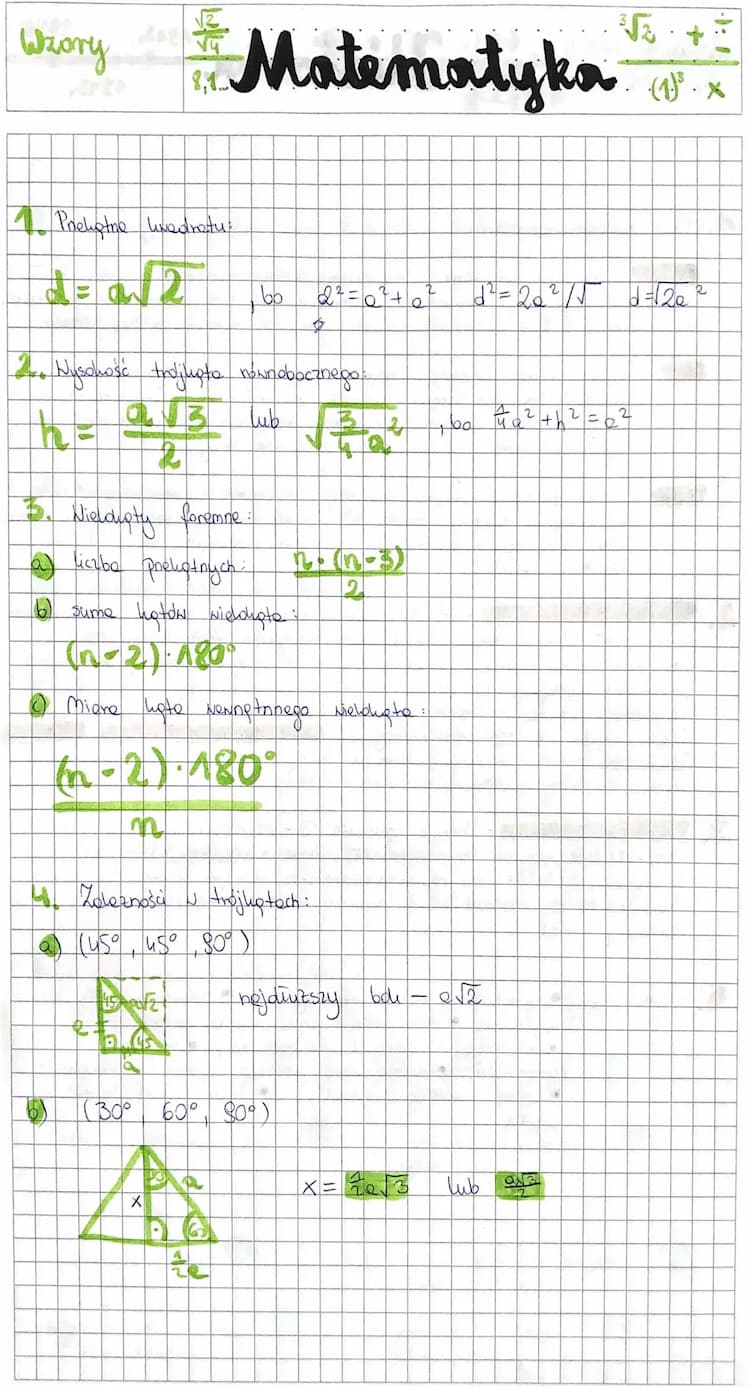 Wzory
√2
√4
8,1...
Matematyka
³√2 . + ÷ -
(1)³ . x
1. Przekątna kwadratu:
d = a√2 , bo d² = a² + a² d² = 2a² /√ d = √2a²
2. Wysokość trójkąta równobocznego:
h = a√3/2 lub √3/4 a² , bo 1/4 a² + h² = a²
3. Wielokąty foremne:
a) liczba przekątnych: n · (n - 3)/2
b) suma kątów wielokąta:
(n - 2) · 180°
c) Miara kąta wewnętrznego wielokąta:
(n - 2) · 180°
n
4. Zależności w trójkątach:
a) (45°, 45°, 90°)
45 a√2
najdłuższy bok - a√2
a
45
a
b) (30°, 60°, 90°)
30 a
x = 1/2 a√3 lub a√3/2
x
60
1/2 a